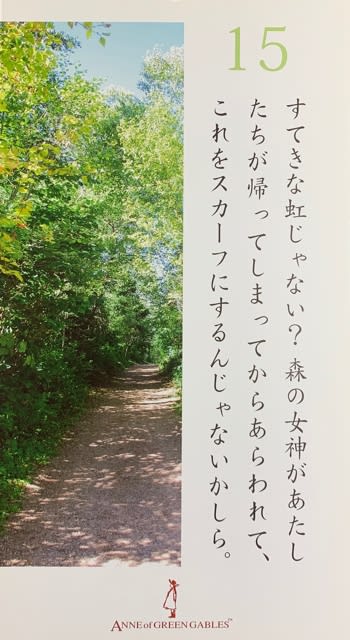 15
すてきな虹じゃない？ 森の女神があたし
たちが帰ってしまってからあらわれて、
これをスカーフにするんじゃないかしら。
ANNE of GREEN GABLES™